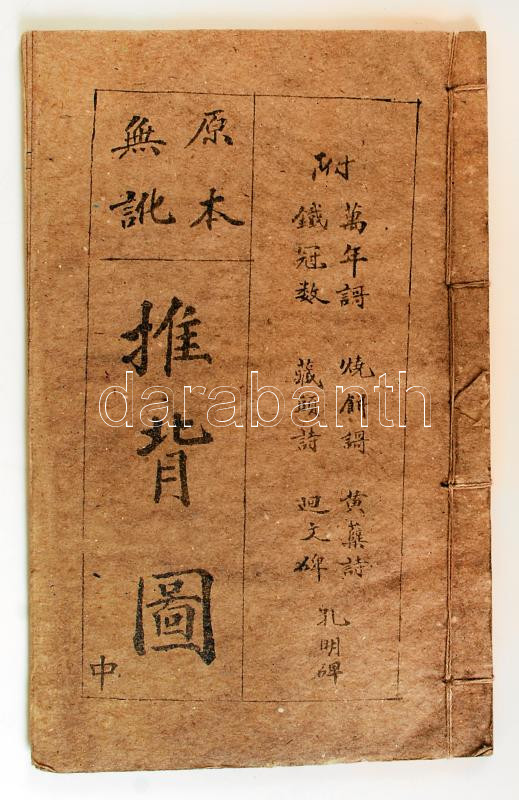 附
萬年謌 燒餅謌 黄蘗詩
鐵冠数 藏頭詩 迴文碑
孔明碑
原本
無訛
推背圖
中
darabanth